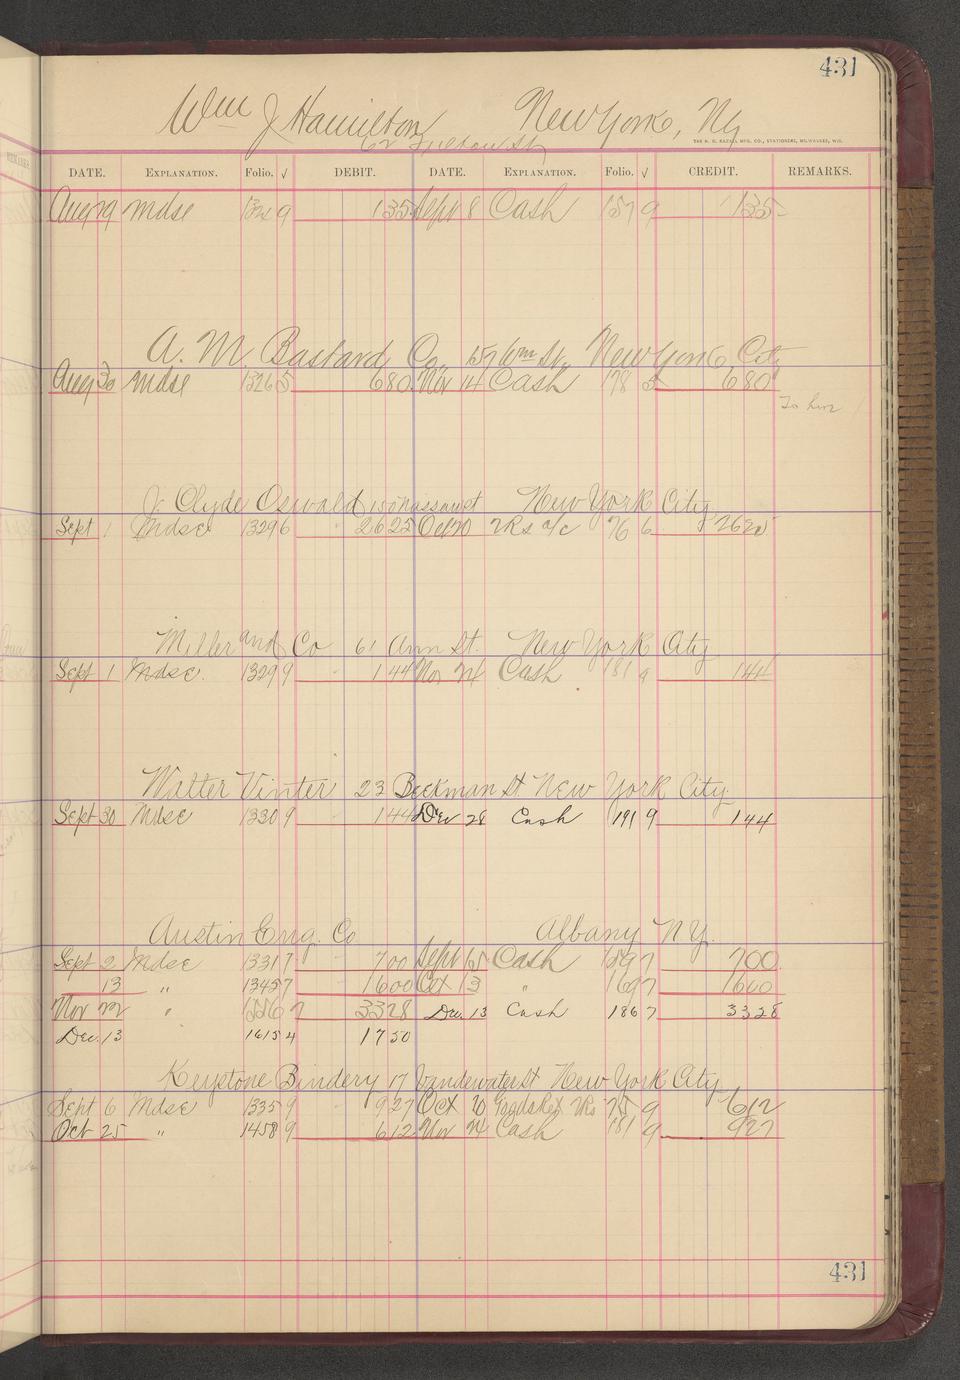 431
Wm J Hamilton New York, Ny
62 Fulton St
THE H. G. RAZALL MFG. CO., STATIONERS, MILWAUKEE, WIS.
DATE. EXPLANATION. Folio. √ DEBIT. DATE. EXPLANATION. Folio. √ CREDIT. REMARKS.
Aug 29 mdse 9 135 Sept 8 Cash 157 9 135
A. M Bastard Co. 157 Wm St. New York City
Aug 30 mdse 1326 5 680 Nov 14 Cash 178 5 680
To him
J. Clyde Oswald 150 Nassau st New York City
Sept 1 Mdse 1329 6 2625 Oct 20 a/c 76 6 2625
Miller and Co 61 Ann St. New York City
Sept 1 Mdse. 1329 9 144 Nov 24 Cash 181 9 144
Walter Vinter 23 Beekman St New York City
Sept 30 Mdse 1330 9 144 Dec 28 Cash 191 9 144
Austin Eng. Co Albany N.Y.
Sept 2 Mdse 1331 7 700 Sept 15 Cash 159 7 700
13 " 1345 7 1600 Oct 13 " 169 7 1600
Nov 22 " 7 3328 Dec. 13 Cash 186 7 3328
Dec. 13 1615 4 1750
Keystone Bindery 17 Vandewater St New York City
Sept 6 Mdse 1335 9 927 Oct 20 75 9 612
Oct 25 " 1458 9 612 Nov 24 Cash 181 9 927
431